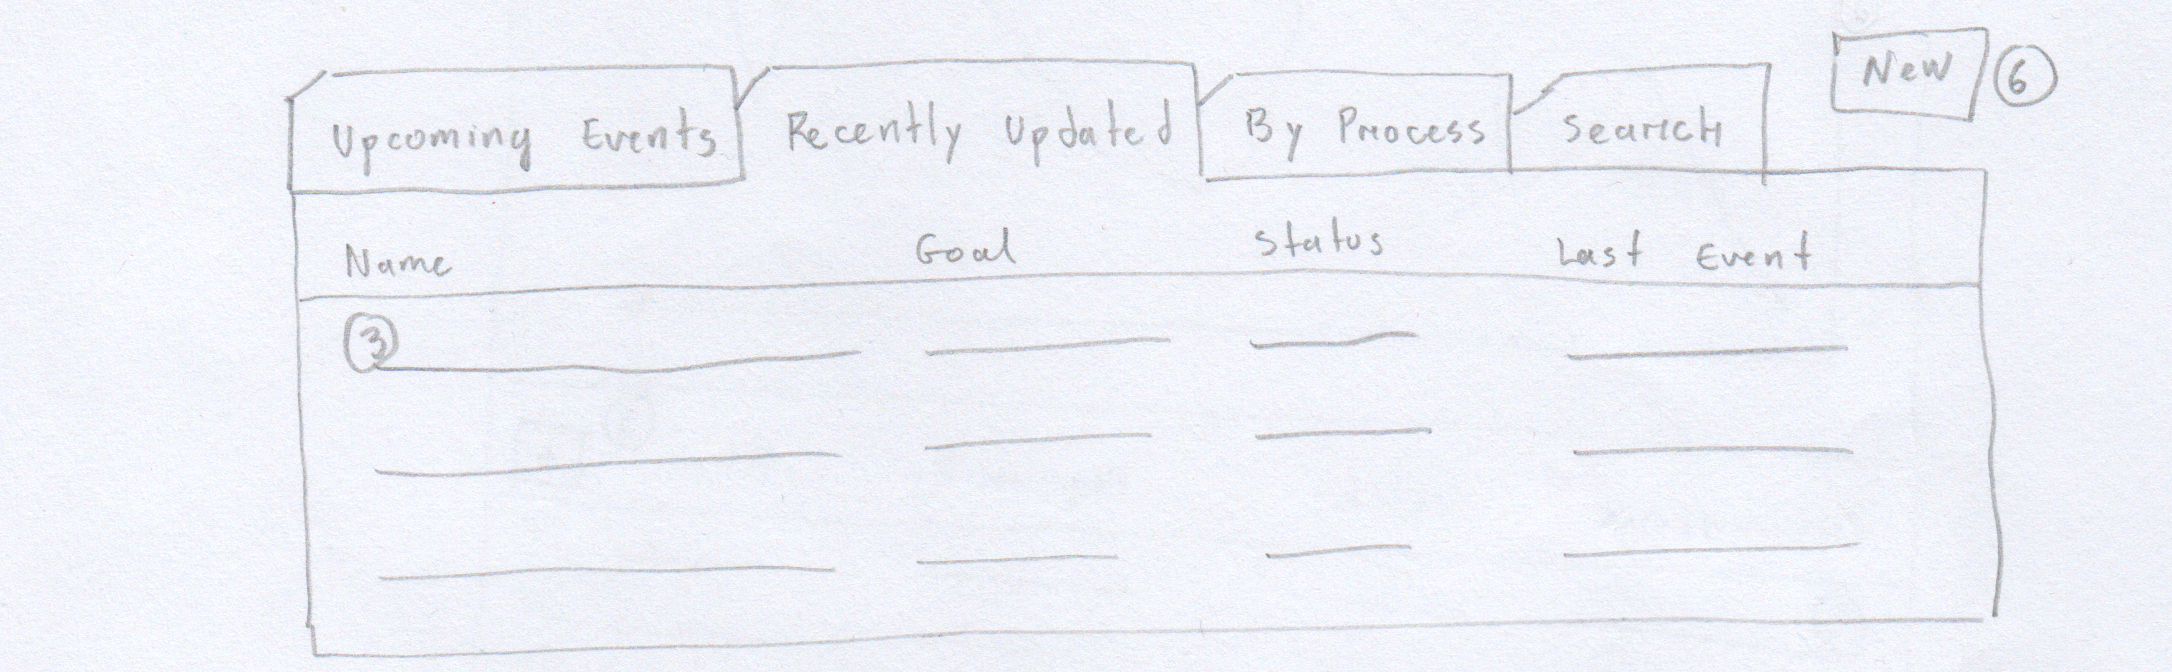 Upcoming Events Recently Updated By Process Search New 6
Name Goal Status Last Event
3